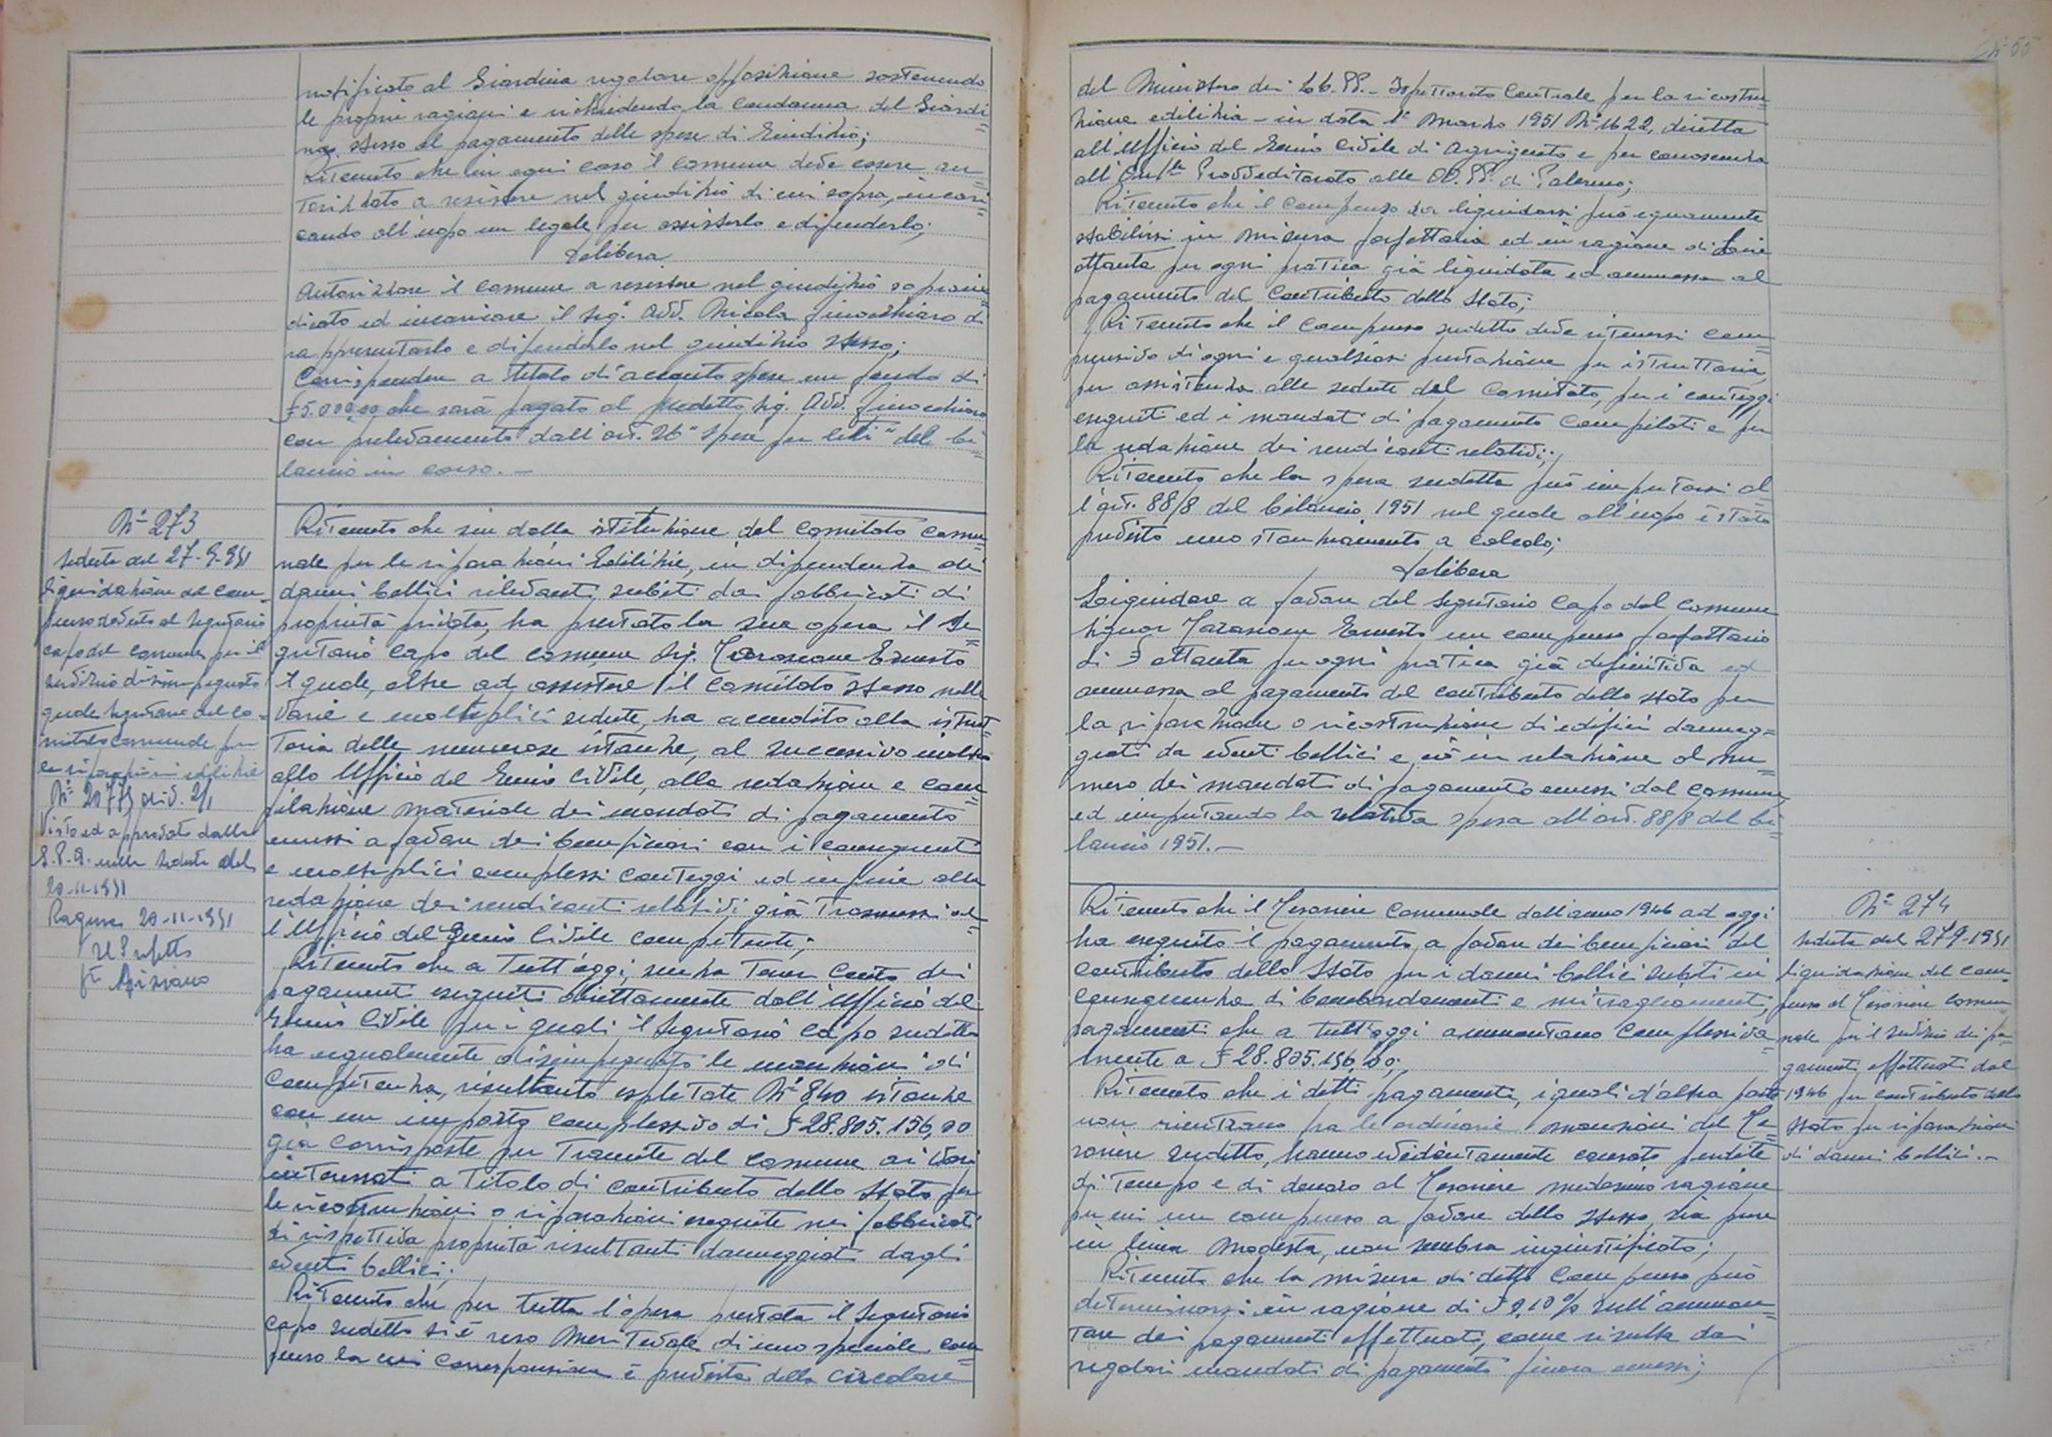 notificato al Giardina regolare opposizione sostenendo
le proprie ragioni e richiedendo la condanna del Giardi=
na stesso al pagamento delle spese di Giudizio;
Ritenuto che in ogni caso il comune deve essere au=
torizzato a resistere nel giudizio di cui sopra, incari=
cando all'uopo un legale per assisterlo e difenderlo;
Delibera
Autorizzare il comune a resistere nel giudizio soprain=
dicato ed incaricare il Sig. Avv. Nicola Finocchiaro di
rappresentarlo e difenderlo nel giudizio stesso;
Corrispondere a titolo di acconto spese un fondo di
£ 5.000,00 che sarà pagato al predetto Sig. Avv. Finocchiaro
con prelevamento dall'art. 26 "Spese per liti" del bi=
lancio in corso. -
N° 273
Seduta del 27-9-951
liquidazione del com=
penso dovuto al Segretario
capo del comune per il
servizio disimpegnato
quale Segretario del Co=
mitato comunale per
le riparazioni edilizie
N° 20773 div. 2/1
Vista ed approvata dalla
G.P.A. nella seduta del
20-11-1951
Ragusa 20-11-1951
Il Prefetto
Ritenuto che sin dalla istituzione del comitato comu=
nale per le riparazioni Edilizie, in dipendenza dei
danni bellici rilevanti subiti dai fabbricati di
proprietà privata, ha prestato la sua opera il Se=
gretario Capo del comune Sig. Ernesto
il quale, oltre ad assistere il comitato stesso nelle
varie e molteplici sedute, ha accudito alla istrut=
toria delle numerose istanze, al successivo inoltro
allo Ufficio del Genio Civile, alla redazione e com=
pilazione materiale dei mandati di pagamento
emessi a favore dei beneficiari con i conseguenti
e molteplici complessi conteggi ed infine alla
redazione dei rendiconti relativi già trasmessi al=
l'Ufficio del Genio Civile competente;
Ritenuto che a tutt'oggi, senza tener conto dei
pagamenti eseguiti direttamente dall'Ufficio del
Genio Civile per i quali il Segretario Capo sudetto
ha egualmente disimpegnato le mansioni di
competenza, risultano espletate N° 840 istanze
con un importo complessivo di £ 28.805.156,00
già corrisposte per tramite del comune ai vari
interessati a titolo di contributo dello Stato per
le ricostruzioni o riparazioni eseguite nei fabbricati
di rispettiva proprietà risultanti danneggiati dagli
eventi bellici;
Ritenuto che per tutta l'opera prestata il Segretario
capo sudetto si è reso meritevole di uno speciale com=
penso la cui corresponsione è prevista dalla circolare
del Ministero dei LL.PP. - Ispettorato Centrale per la ricostru=
zione edilizia - in data 1° Marzo 1951 N° 1622, diretta
all'Ufficio del Genio Civile di Agrigento e per conoscenza
all' Provveditorato alle OO.PP. di Palermo;
Ritenuto che il compenso da liquidarsi può egualmente
stabilirsi in misura forfettaria ed in ragione di Lire
ottanta per ogni pratica già liquidata ed ammessa al
pagamento del contributo dello Stato;
Ritenuto che il compenso sudetto deve ritenersi com=
prensivo di ogni e qualsiasi prestazione per istruttoria,
per assistenza alle sedute del Comitato, per i conteggi
eseguiti ed i mandati di pagamento compilati e per
la redazione dei rendiconti relativi;
Ritenuto che la spesa sudetta può imputarsi al=
l'art. 88/8 del bilancio 1951 nel quale all'uopo è stato
previsto uno stanziamento a calcolo;
Delibera
Liquidare a favore del Segretario Capo del comune
Signor Ernesto un compenso forfettario
di £ ottanta per ogni pratica già definitiva ed
ammessa al pagamento del contributo dello Stato per
la riparazione o ricostruzione di edifici danneg=
giati da eventi bellici e ciò in relazione al nu=
mero dei mandati di pagamento emessi dal comune
ed imputando la relativa spesa all'art. 88/8 del bi=
lancio 1951. -
Ritenuto che il Tesoriere Comunale dall'anno 1946 ad oggi
ha eseguito il pagamento a favore dei beneficiari del
contributo dello Stato per i danni bellici subiti in
conseguenza di bombardamenti e mitragliamenti,
pagamenti che a tutt'oggi ammontano complessiva=
mente a £ 28.805.156,00;
Ritenuto che i detti pagamenti, i quali d'altra parte
non rientrano fra le ordinarie mansioni del Te=
soriere sudetto, hanno evidentemente causato perdite
di tempo e di denaro al Tesoriere medesimo ragione
per cui un compenso a favore dello stesso, sia pure
in linea modesta, non sembra ingiustificato;
Ritenuto che la misura di detto compenso può
determinarsi in ragione di £ 0,10% sull'ammon=
tare dei pagamenti effettuati, come risulta dai
regolari mandati di pagamento finora emessi;
N° 274
Seduta del 27-9-1951
liquidazione del com=
penso al Tesoriere comu=
nale per il servizio dei pa=
gamenti effettuati dal
1946 per contributo dello
Stato per riparazioni
di danni bellici. -